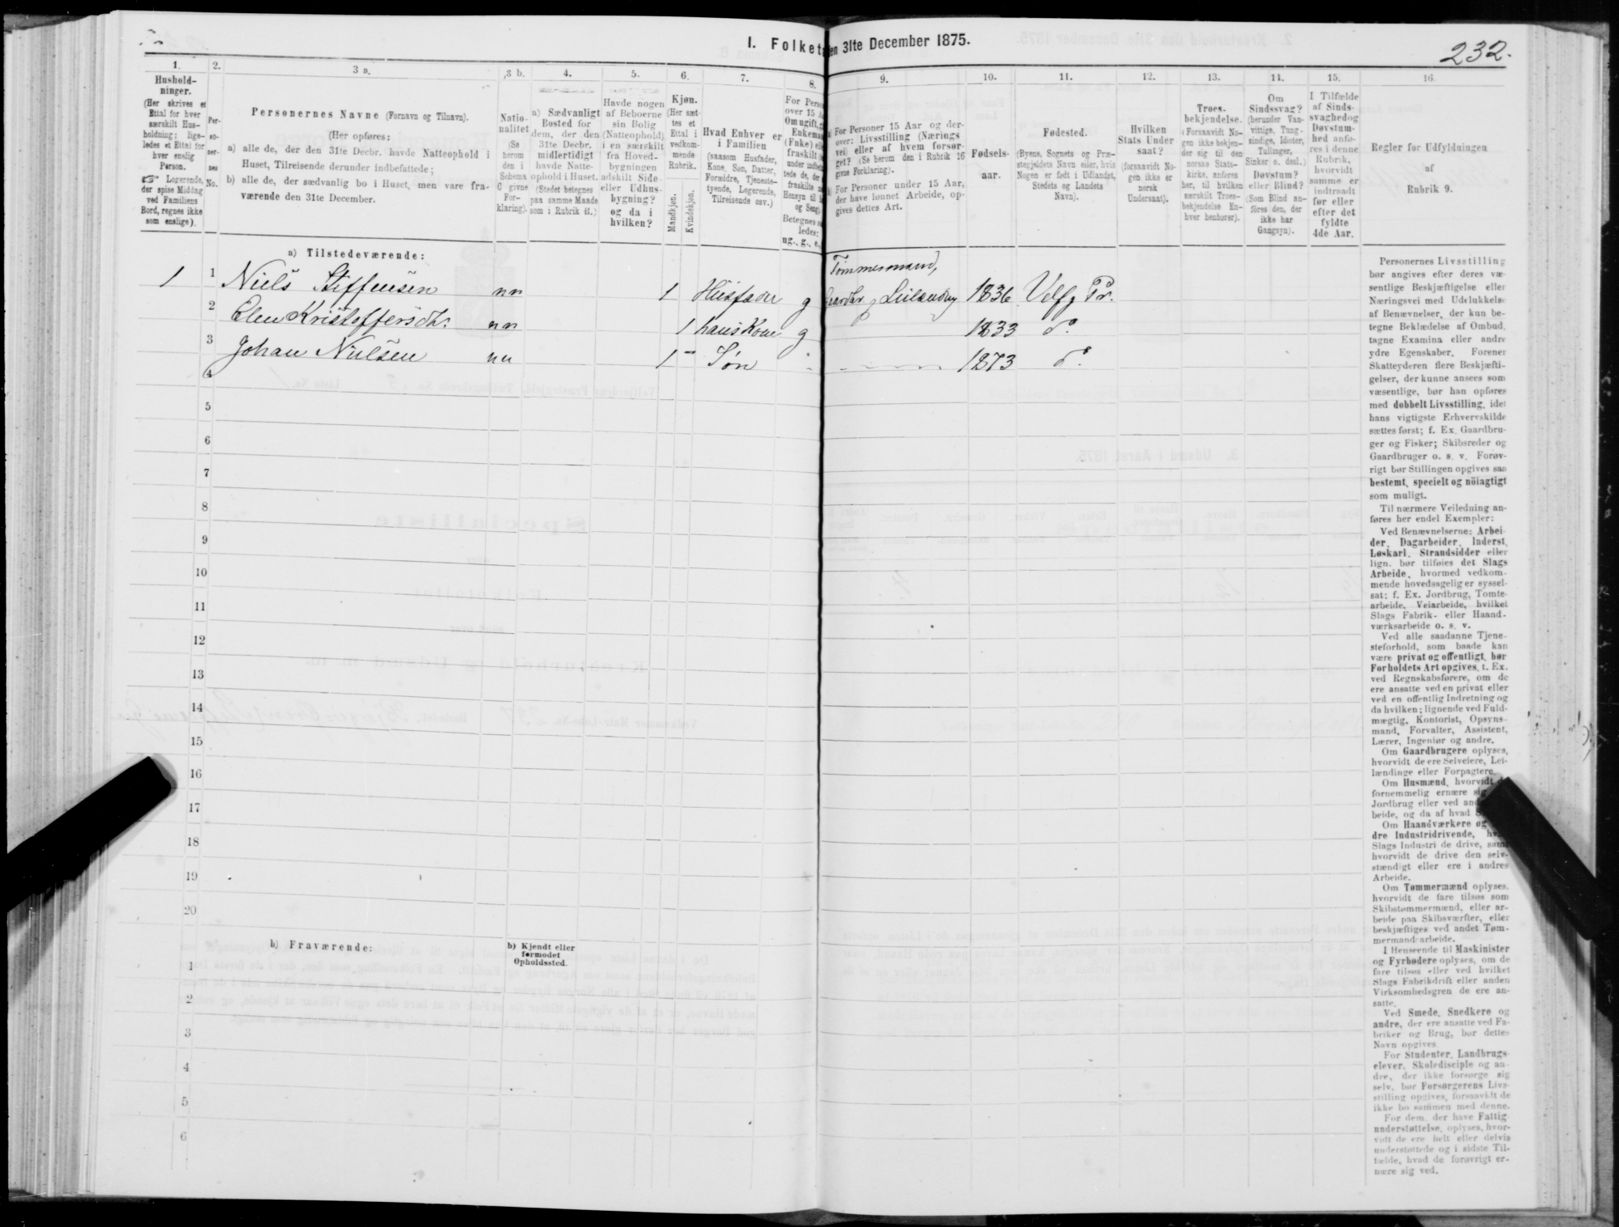 I. Folketæ
en 31te December 1875.
232.
1.
2.
3 a.
3 b.
4.
5.
6.
7.
8.
9.
10.
11.
12.
13.
14.
15.
16.
Hushold-
ninger.
(Her skrives et
Ettal for hver
særskilt Hus-
holdning; lige-
ledes et Ettal for
hver enslig
Person.
Logerende,
der spise Middag
ved Familiens
Bord, regnes ikke
som enslige).
Per-
so-
ner-
nes
No.
Personernes Navne (Fornavn og Tilnavn).
(Her opføres:
a) alle de, der den 31te Decbr. havde Natteophold i
Huset, Tilreisende derunder indbefattede;
b) alle de, der sædvanlig bo i Huset, men vare fra-
værende den 31te December.
Natio-
nalitet
(Se
herom
den i
Schema
C givne
For-
klaring).
a) Sædvanligt
Bosted for
dem, der den
31te Decbr.
midlertidigt
havde Natte-
ophold i Huset.
(Stedet betegnes
paa samme Maade
som i Rubrik 11.)
Havde nogen
af Beboerne
sin Bolig
(Natteophold)
i en særskilt
fra Hoved-
bygningen
adskilt Side-
eller Udhus-
bygning?
og da i
hvilken?
Kjøn.
(Her sæt-
tes et
Ettal i
vedkom-
mende
Rubrik.
Mandkjøn.
Kvindekjøn.
Hvad Enhver er
i Familien
(saasom Husfader,
Kone, Søn, Datter,
Forældre, Tjeneste-
tyende, Logerende,
Tilreisende osv.)
For Perso
over 15 A
Om ugift,
Enkema
(Enke)
fraskilt
Betegnes
ledes:
ug., g., e.,
For Personer 15 Aar og der-
over: Livsstilling (Nærings-
vei) eller af hvem forsør-
get? (Se herom den i Rubrik 16
givne Forklaring).
For Personer under 15 Aar,
der have lønnet Arbeide, op-
gives dettes Art.
Fødsels-
aar.
Fødested.
(Byens, Sognets og Præ-
stegjeldets Navn eller, hvis
Nogen er født i Udlandet,
Stedets og Landets
Navn).
Hvilken
Stats Under-
saat?
(forsaavidt No-
gen ikke er
norsk
Undersaat).
Troes-
bekjendelse.
(Forsaavidt No-
gen ikke bekjen-
der sig til den
norske Stats-
kirke, anføres
her, til hvilken
særskilt Troes-
bekjendelse En-
hver henhører).
Om
Sindssvag?
(herunder Van-
vittige, Tung-
sindige, Idioter,
Tullinger,
Sinker o. desl.)
Døvstum?
eller Blind?
(Som Blind an-
føres den, der
ikke har
Gangsyn).
I Tilfælde
af Sinds-
svaghed og
Døvstum-
hed anfø-
res i denne
Rubrik,
hvorvidt
samme er
indtraadt
før eller
efter det
fyldte
4de Aar.
Regler for Udfyldningen
af
Rubrik 9.
a) Tilstedeværende:
Tømmermand,
1 1 Niels Stiffensen nn 1 Husfader g Gaardbr. g 1836 Velfj Pr.
2 Elen Kristoffersdtr. nn 1 hans Kone g 1833 do
3 Johan Nielsen nn 1 Søn 1873 do
4
5
6
7
8
9
10
11
12
13
14
15
16
17
18
19
20
b) Fraværende:
b) Kjendt eller
formodet
Opholdssted.
1
2
3
4
5
6
Personernes Livsstilling
bør angives efter deres væ-
sentlige Beskjæftigelse eller
Næringsvei med Udelukkelse
af Benævnelser, der kun be-
tegne Beklædelse af Ombud,
tagne Examina eller andre
ydre Egenskaber. Forener
Skatteyderen flere Beskjæfti-
gelser, der kunne ansees som
væsentlige, bør han opføres
med dobbelt Livsstilling, idet
hans vigtigste Erhvervskilde
sættes først; f. Ex. Gaardbru-
ger og Fisker; Skibsreder og
Gaardbruger o. s. v. Forøv-
rigt bør Stillingen opgives saa
bestemt, specielt og nöiagtigt
som muligt.
Til nærmere Veiledning an-
føres her endel Exempler:
Ved Benævnelserne: Arbei-
der, Dagarbeider, Inderst,
Løskarl, Strandsidder eller
lign. bør tilføies det Slags
Arbeide, hvormed vedkom-
mende hovedsagelig er syssel-
sat; f. Ex. Jordbrug, Tomte-
arbeide, Veiarbeide, hvilket
Slags Fabrik- eller Haand-
værksarbeide o. s. v.
Ved alle saadanne Tjene-
steforhold, som baade kan
være privat og offentligt, bør
Forholdets Art opgives, f. Ex.
ved Regnskabsførere, om de
ere ansatte ved en privat eller
ved en offentlig Indretning og
da hvilken; lignende ved Fuld-
mægtig, Kontorist, Opsyns-
mand, Forvalter, Assistent,
Lærer, Ingeniør og andre.
Om Gaardbrugere oplyses,
hvorvidt de ere Selveiere, Lei-
lændinge eller Forpagtere.
Om Husmænd, hvorvidt
fornemmelig ernære
Jordbrug eller ved
beide, og da af hvad
Om Haandværkere og
dre Industridrivende,
Slags Industri de drive, samt
hvorvidt de drive den selv-
stændigt eller ere i andres
Arbeide.
Om Tømmermænd oplyses,
hvorvidt de fare tilsøs som
Skibstømmermænd, eller ar-
beide paa Skibsværfter, eller
beskjæftiges ved andet Tøm-
mermandsarbeide.
I Henseende til Maskinister
og Fyrbødere oplyses, om de
fare tilsøs eller ved hvilket
Slags Fabrikdrift eller anden
Virksomhedsgren de ere an-
satte.
Ved Smede, Snedkere og
andre, der ere ansatte ved Fa-
briker og Brug, bør dettes
Navn opgives.
For Studenter, Landbrugs-
elever, Skoledisciple og an-
dre, der ikke forsørge sig
selv, bør Forsørgerens Livs-
stilling opgives, forsaavidt de
ikke bo sammen med denne.
For dem, der have Fattig-
understøttelse, oplyses, hvor-
vidt de ere helt eller delvis
understøttede og i sidste Til-
fælde, hvad de forøvrigt er-
nære sig ved.